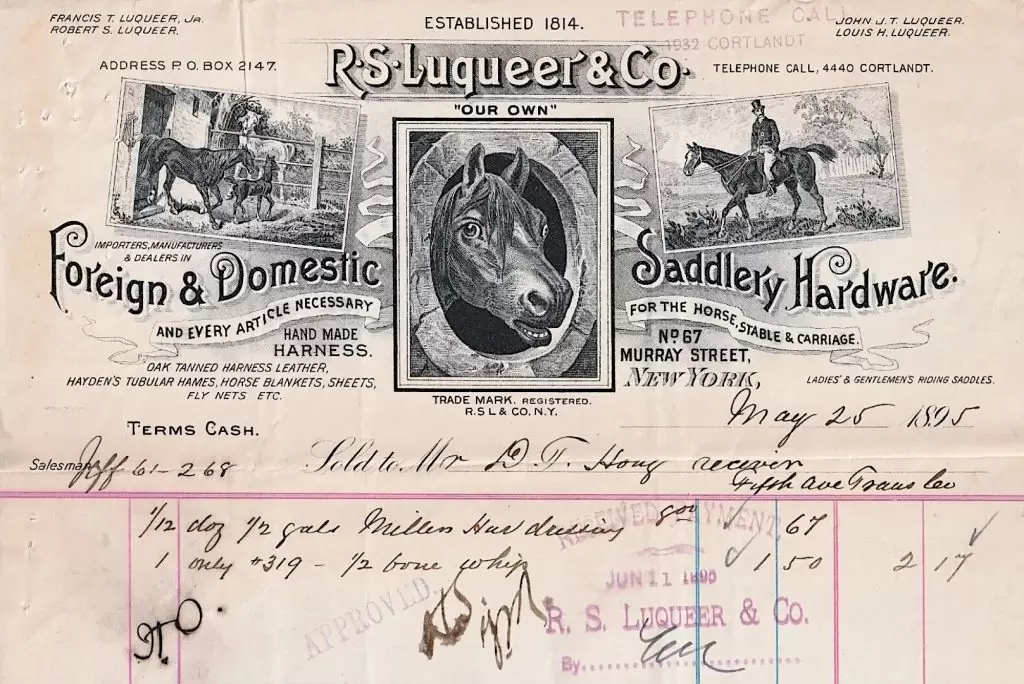 FRANCIS T. LUQUEER, JR.
ROBERT S. LUQUEER.
ESTABLISHED 1814.
TELEPHONE CALL
1932 CORTLANDT
JOHN J. T. LUQUEER.
LOUIS H. LUQUEER.
ADDRESS P. O. BOX 2147.
R·S·Luqueer & Co.
TELEPHONE CALL, 4440 CORTLANDT.
"OUR OWN"
IMPORTERS, MANUFACTURERS
& DEALERS IN
Foreign & Domestic
Saddlery Hardware.
AND EVERY ARTICLE NECESSARY
FOR THE HORSE, STABLE & CARRIAGE.
HAND MADE
HARNESS.
OAK TANNED HARNESS LEATHER,
HAYDEN'S TUBULAR HAMES, HORSE BLANKETS, SHEETS,
FLY NETS ETC.
No 67
MURRAY STREET,
NEW YORK,
LADIES' & GENTLEMEN'S RIDING SADDLES.
TRADE MARK. REGISTERED.
R.S L & CO. N.Y.
May 25 1895
TERMS CASH.
Salesman 61-268
Sold to Mr D T. Hoag receiver
Fifth Ave Trans Co
1/12 doz 1/2 gals Millers Har dressing 8 00 67
1 only #319 - 1/2 bone whip 1 50 2 17
RECEIVED PAYMENT
JUN 11 1895
R. S. LUQUEER & CO.
By
APPROVED